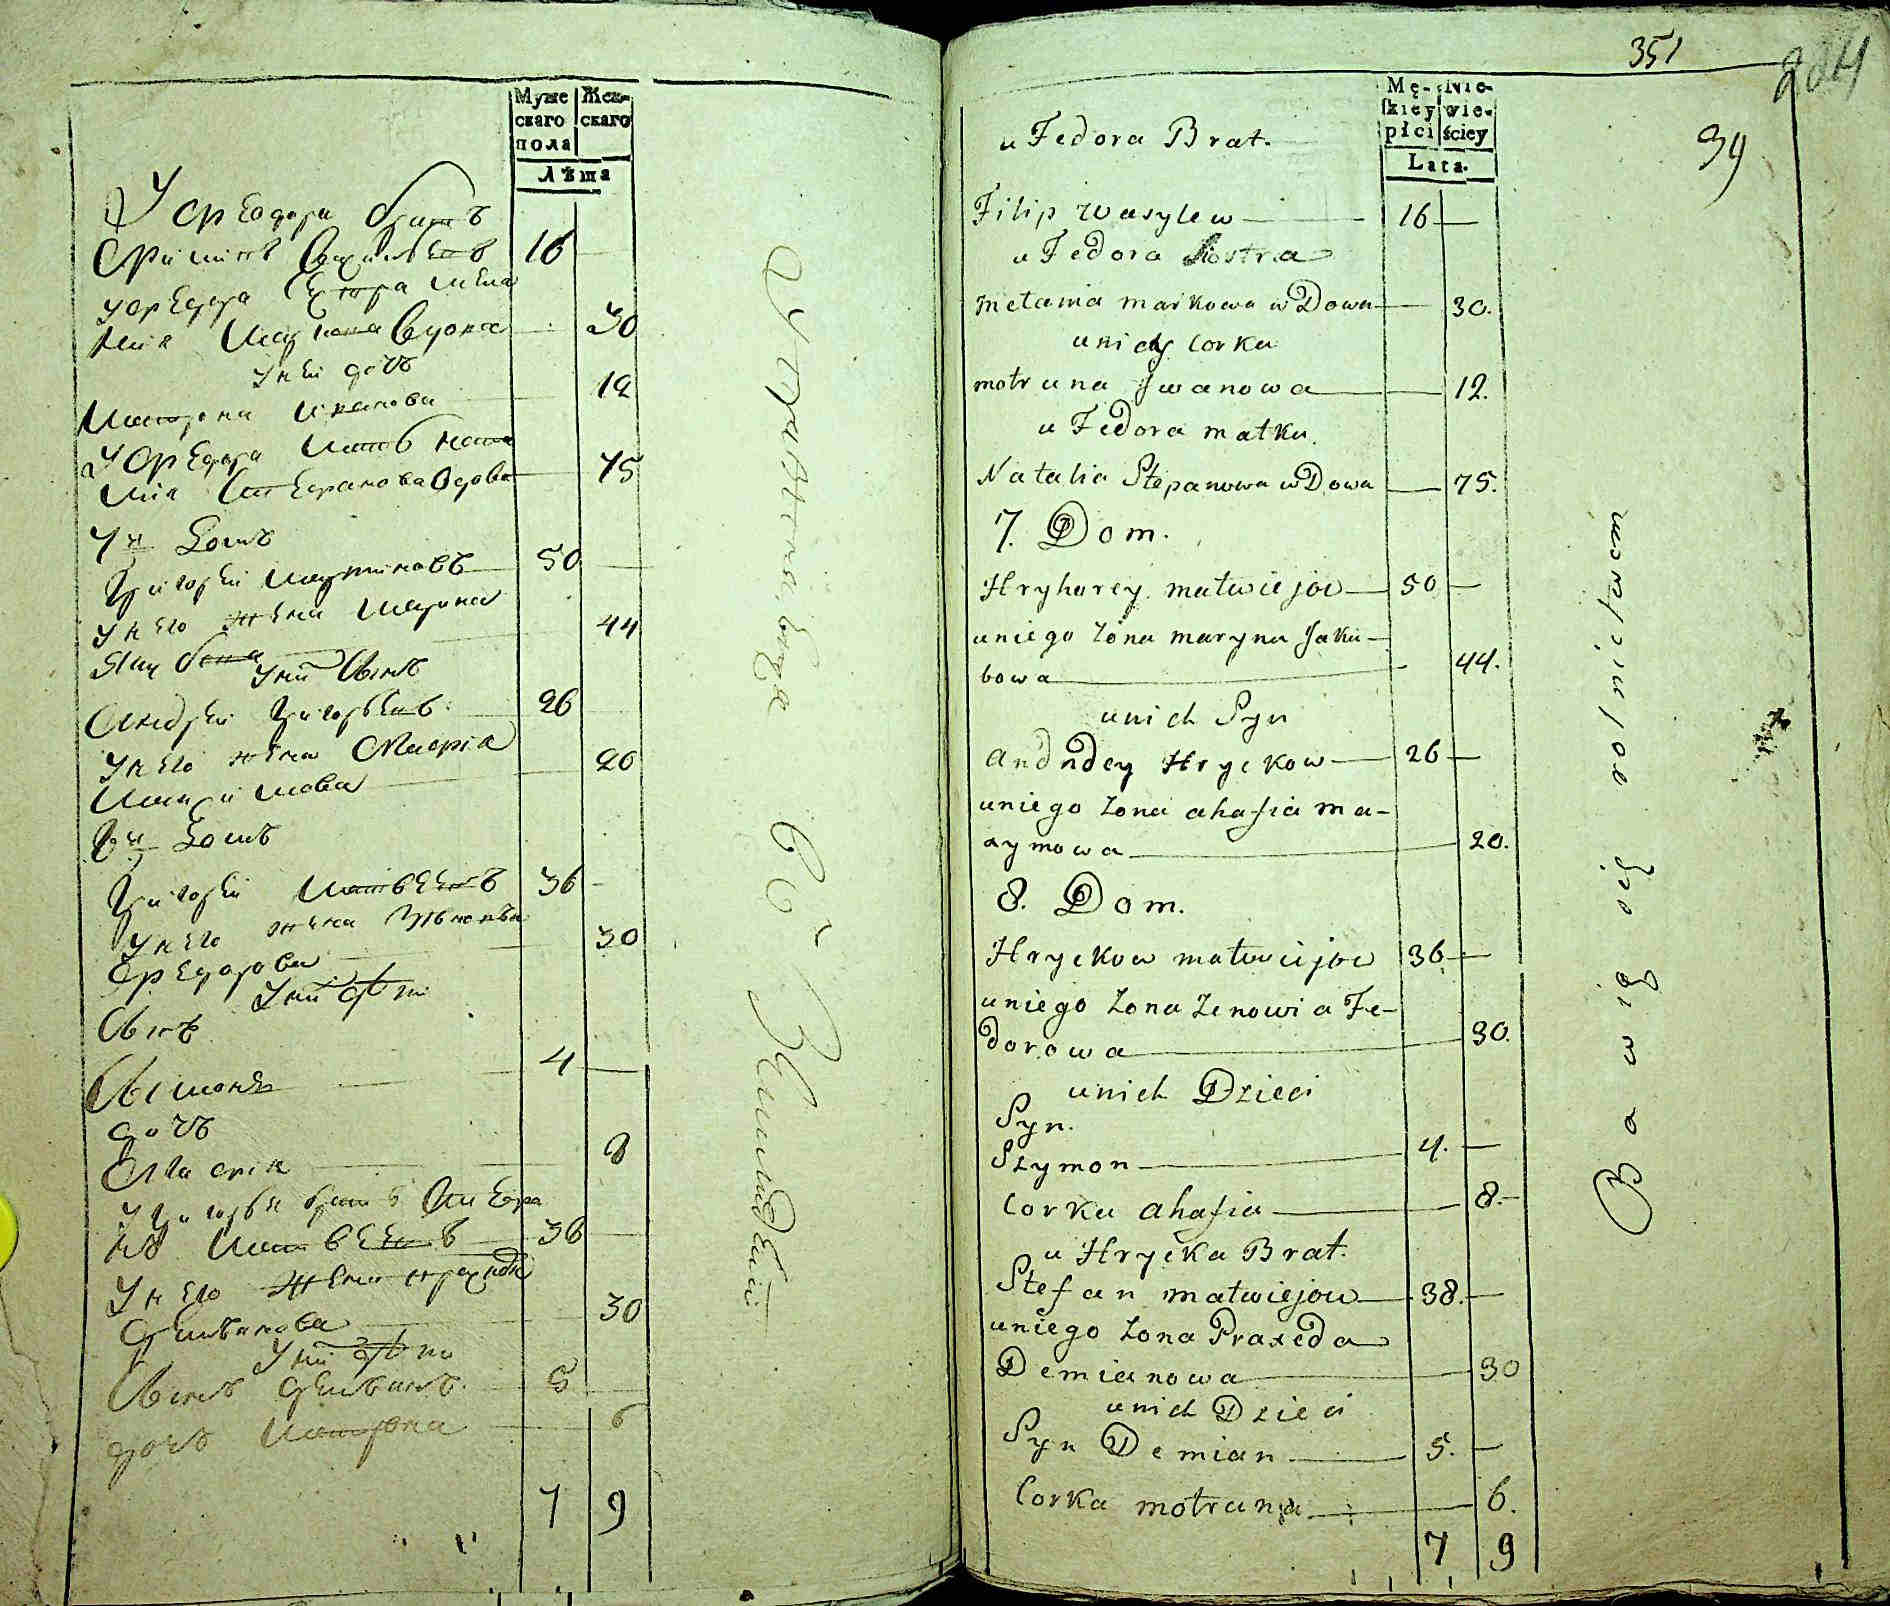 Муже
скаго
пола
Жен-
скаго
Лѣта
У Федора братъ
Филипъ Василевъ 16
у Федора сестра Мела
нія Маркова вдова 30
У ней дочь
Матрона Иванова 12
У Федора мать Ната
лія Степанова вдова 75
7й Домъ
Григорей 50
У него жена Марина
Якубова 44
У них сынъ
Андрей Григорьевъ 26
У него жена Агафія
Максимова 20
8й Домъ
Григорей Матвеевъ 36
У него жена Зѣновья
Федорова 30
У них дѣти
Сынъ
Симонъ 4
дочь
Агафія 8
У Григорья братъ Степа
нъ Матвеевъ 38
У него жена
Демьянова 30
У них дѣти
Сынъ Демьянъ 5
дочь Матрона 6
7 9
351
204
39
Mę-
skiey
płci
Nie-
wie-
ściey
Lata.
u Fedora Brat.
Filip Wasylew 16
u Fedora Siostra
Melania Markowa wDowa 30.
unich Corka
motruna Jwanowa 12.
u Fedora matka.
Natalia Stepanowa wDowa 75.
7. Dom.
Hryhorey matwiejow 50
uniego Żona maryna Jaku-
bowa 44.
unich Syn
Andndey Hryckow 26
uniego Żona ahafia ma-
xymowa 20.
8. Dom.
Hryckow matwiejow 36
uniego Żona Zenowia Fe-
dorowa 30.
unich Dzieci
Syn.
Szymon 4.
Corka ahafia 8.
u Hrycka Brat.
Stefan matwiejow 38.
uniego Żona Praxeda
Demianowa 30
unich Dzieci
Syn Demian 5.
Corka motruna 6.
7 9
Bawią się rolnictwem